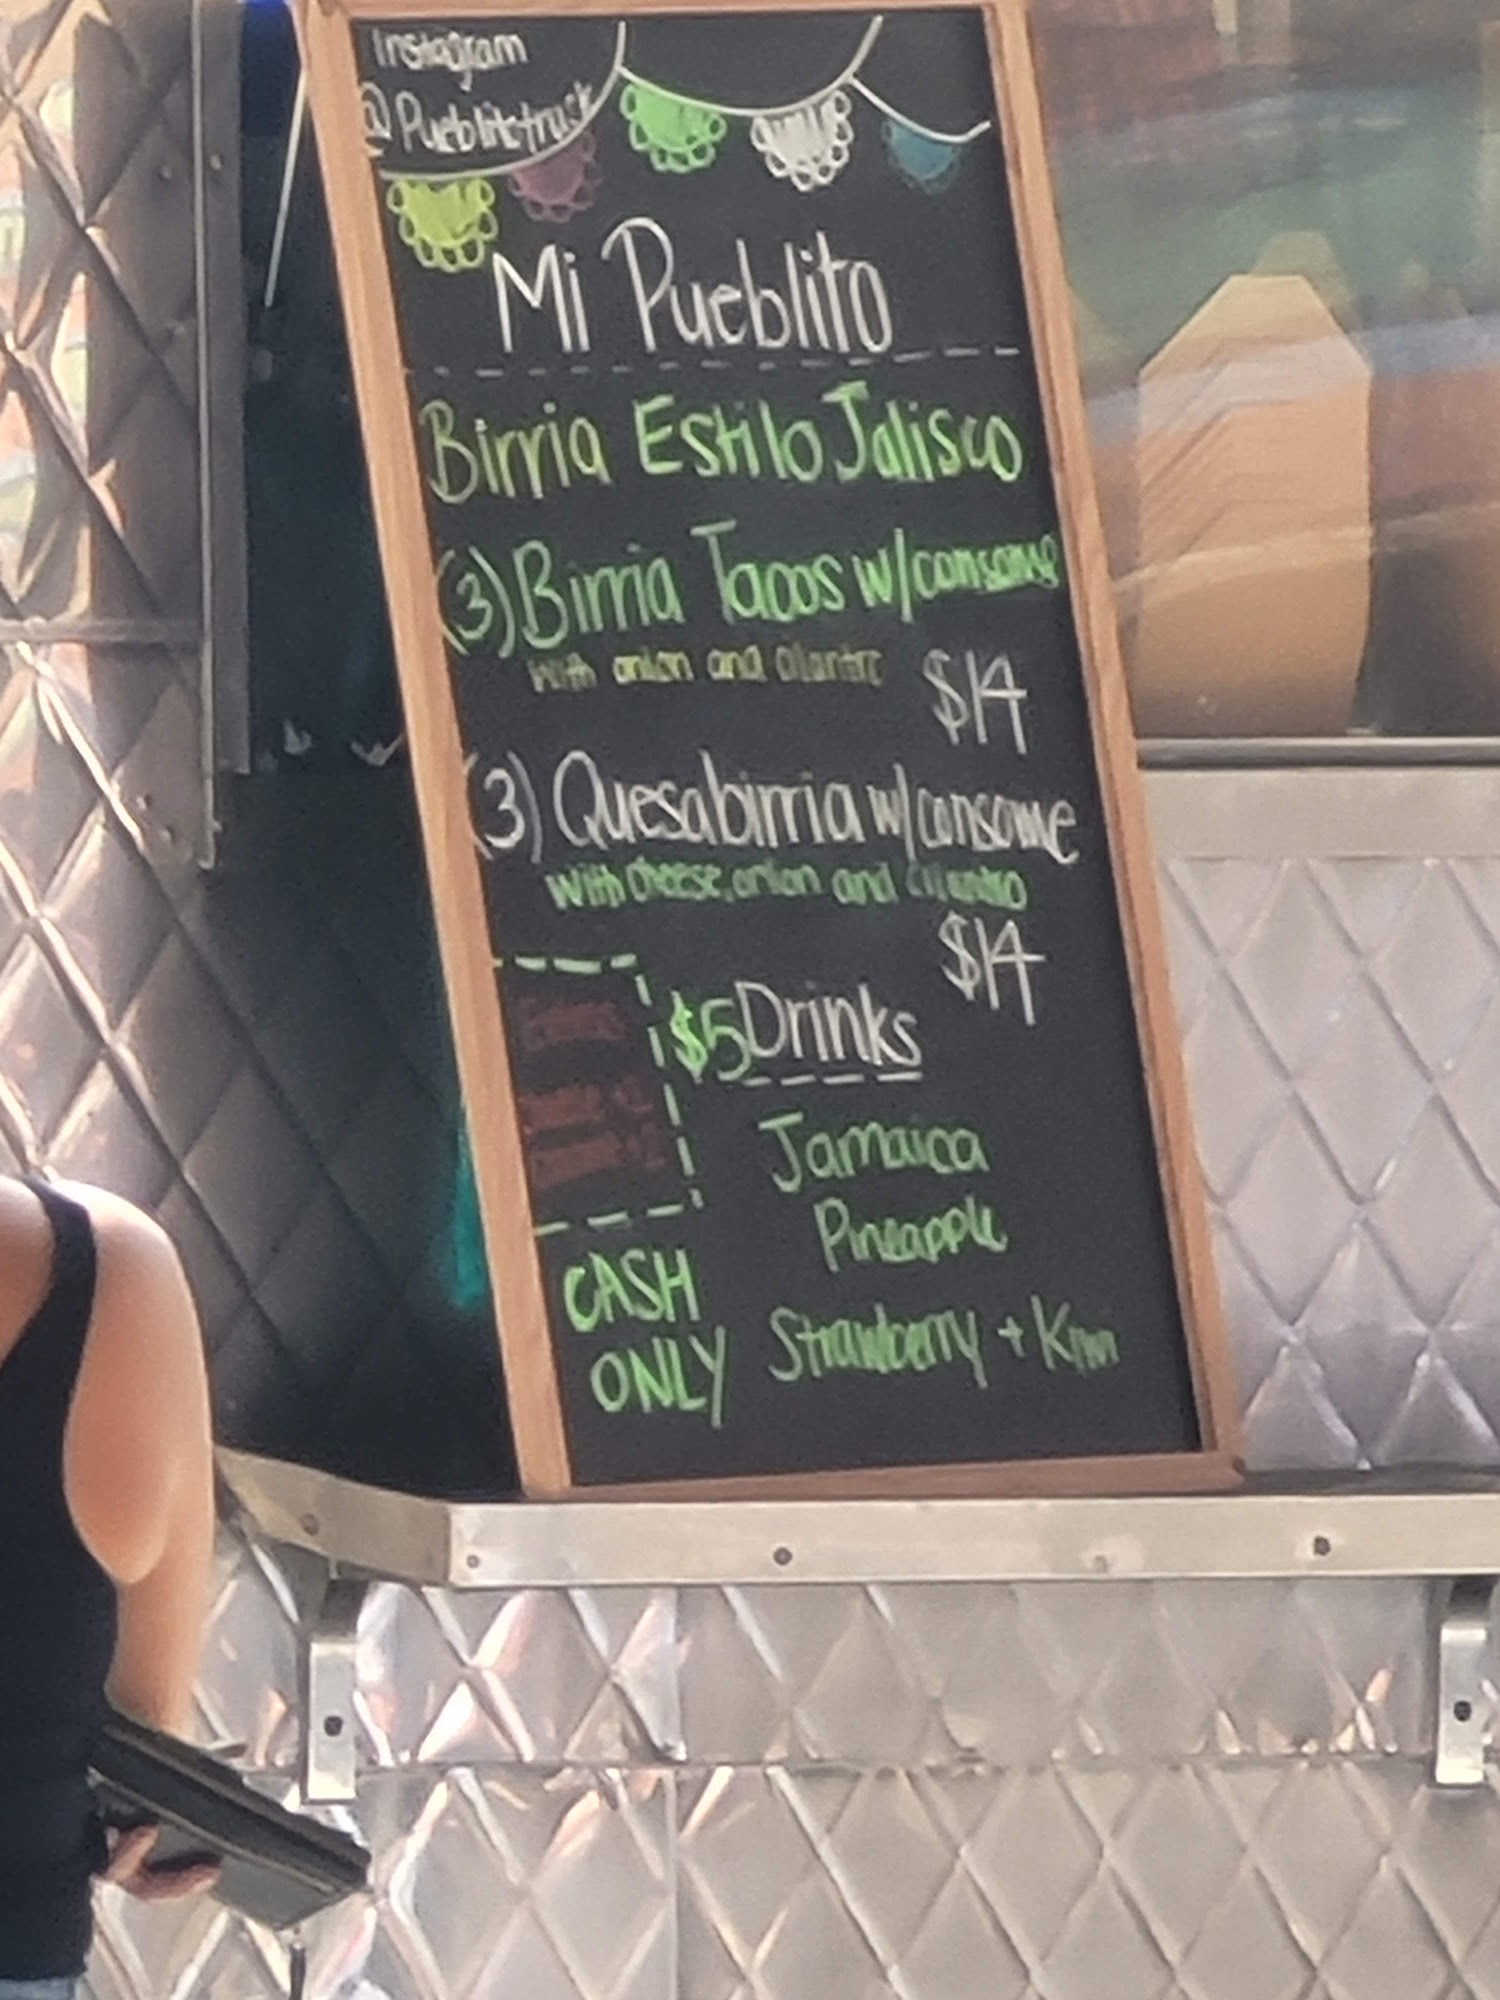 Instagram
@Pueblitotruck
Mi Pueblito
Birria Estilo Jalisco
(3) Birria Tacos w/consome
with onion and cilantro
$14
(3) Quesabirria w/consome
with cheese, onion and cilantro
$14
$5 Drinks
Jamaica
Pineapple
Strawberry + Kiwi
CASH
ONLY